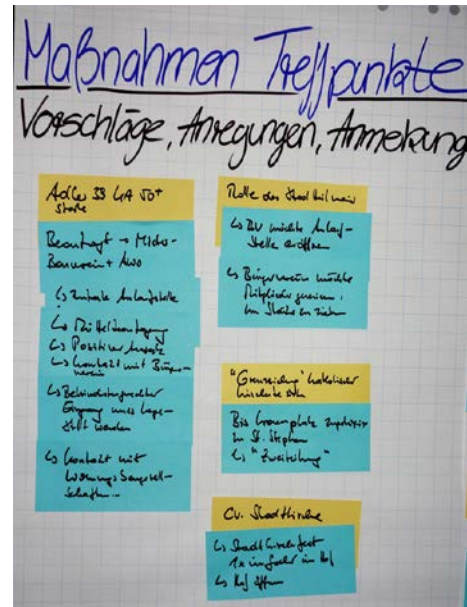 Maßnahmen Treffpunkte
Vorschläge, Anregungen, Anmerkung
Adler 33 GA 50+
Stade
Beantragt → Mikro-
Bauverein + AWO
↳ zentrale Anlaufstelle
↳ Mittelbeantragung
↳ Positiver Ansatz
↳ Kontakt mit Bürger-
verein
↳ Behindertengerechter
Eingang muss herge-
stellt werden
↳ Kontakt mit
Wohnungsbaugesell-
schaften
Rolle des Stadtteil
↳ BV möchte Anlauf-
stelle eröffnen
↳ Bürgerverein möchte
Mitglieder gewinnen,
um Stärke zu
katholischer
Bis
in St. Stephan
↳ "Zweiteilung"
ev. Stadtkirche
↳ Stadtkirchfest
1x im Jahr im Hof
↳ Hof öffnen